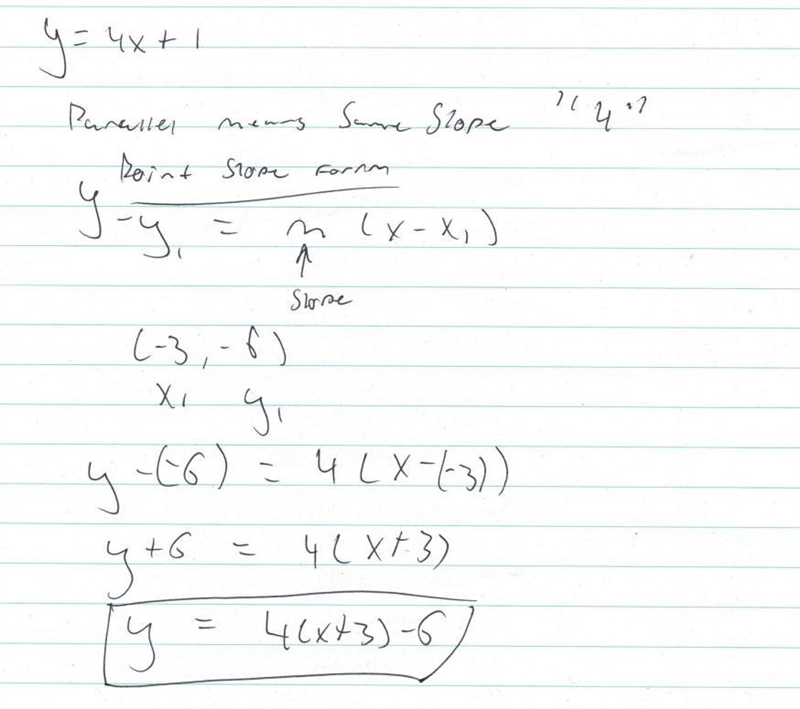 y = 4x + 1
Parallel means Same Slope "4"
Point Slope Form
y - y₁ = m (x - x₁)
↑
Slope
(-3, -6)
x₁ y₁
y -(-6) = 4(x-(-3))
y+6 = 4(x+3)
y = 4(x+3)-6